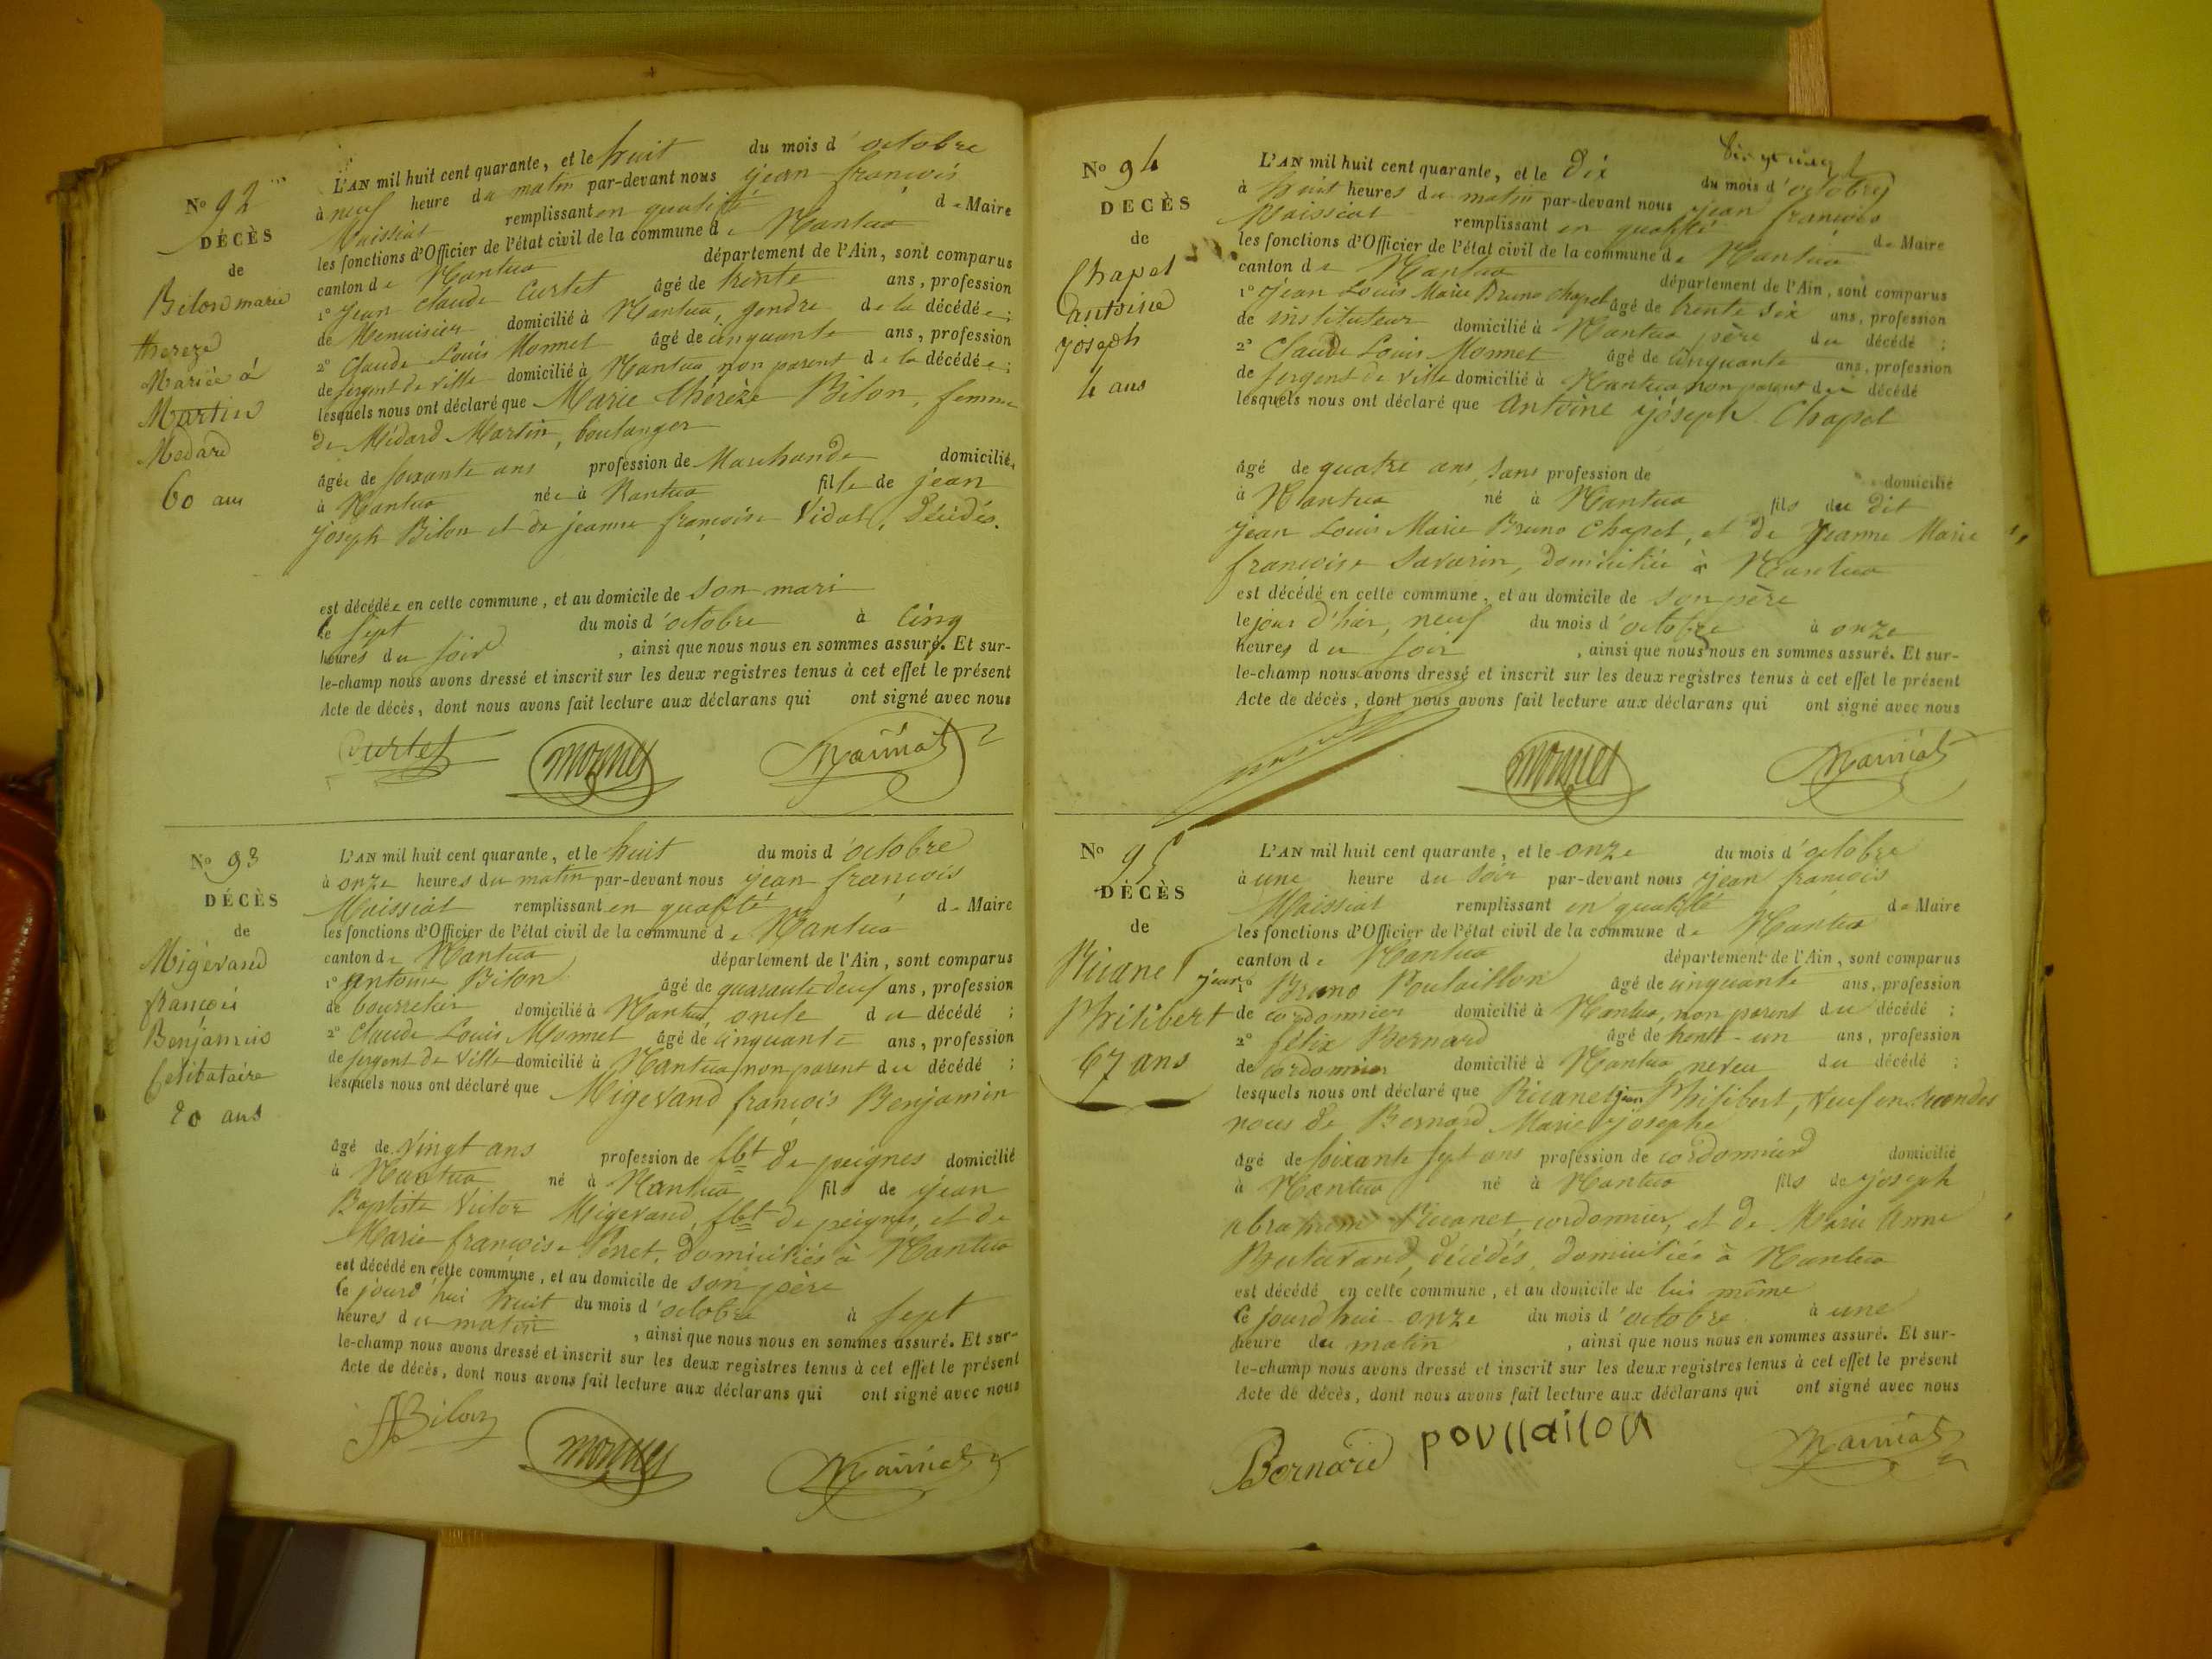 N° 92
DÉCÈS
de
Bilon marie
thereze
Mariée à
Martin
Medard
60 ans
L'AN mil huit cent quarante, et le huit du mois d'octobre
à neuf heure du matin par-devant nous jean françois
Maissiat remplissant en qualité de Maire
les fonctions d'Officier de l'état civil de la commune de Nantua
canton de Nantua département de l'Ain, sont comparus
1° Jean Claude Curtet âgé de trente ans, profession
de Menuisier domicilié à Nantua, gendre de la décédée;
2° Claude Louis Monnet âgé de cinquante ans, profession
de sergent de ville domicilié à Nantua non parent de la décédée;
lesquels nous ont déclaré que Marie thérèze Bilon, femme
De Médard Martin, boulanger
âgée de soixante ans profession de Marchande domiciliée
à Nantua née à Nantua fille de jean
joseph Bilon et de jeanne françoise Vidal, décédés.
est décédée en cette commune, et au domicile de son mari
le sept du mois d'octobre à cinq
heures du soir, ainsi que nous nous en sommes assuré. Et sur-
le-champ nous avons dressé et inscrit sur les deux registres tenus à cet effet le présent
Acte de décès, dont nous avons fait lecture aux déclarans qui ont signé avec nous
Curtet monnet Maissiat
N° 93
DÉCÈS
de
Migevand
françois
Benjamin
Celibataire
20 ans
L'AN mil huit cent quarante, et le huit du mois d'octobre
à onze heures du matin par-devant nous jean françois
Maissiat remplissant en qualité de Maire
les fonctions d'Officier de l'état civil de la commune de Nantua
canton de Nantua département de l'Ain, sont comparus
1° Antoine Bilon âgé de quarante deux ans, profession
de bourrelier domicilié à Nantua, oncle du décédé;
2° Claude Louis Monnet âgé de cinquante ans, profession
de sergent de Ville domicilié à Nantua non parent du décédé;
lesquels nous ont déclaré que Migevand françois Benjamin
âgé de vingt ans profession de fbt de peignes domicilié
à Nantua né à Nantua fils de jean
Baptiste Victor Migevand, fbt de peignes, et de
Marie françoise Perret, domiciliés à Nantua
est décédé en cette commune, et au domicile de son père
le jourd'hui huit du mois d'octobre à sept
heures du matin, ainsi que nous nous en sommes assuré. Et sur-
le-champ nous avons dressé et inscrit sur les deux registres tenus à cet effet le présent
Acte de décès, dont nous avons fait lecture aux déclarans qui ont signé avec nous
ABilon monnet Maissiat
N° 94
DECÈS
de
Chapel
Antoine
joseph
4 ans
L'AN mil huit cent quarante, et le Dix du mois d'octobre
à huit heures du matin par-devant nous jean françois
Maissiat remplissant en qualité de Maire
les fonctions d'Officier de l'état civil de la commune de Nantua
canton de Nantua département de l'Ain, sont comparus
1° Jean Louis Marie Bruno Chapel âgé de trente six ans, profession
de instituteur domicilié à Nantua père du décédé;
2° Claude Louis Monnet âgé de cinquante ans, profession
de sergent de ville domicilié à Nantua non parent du décédé
lesquels nous ont déclaré que Antoine joseph Chapel
âgé de quatre ans, sans profession de domicilié
à Nantua né à Nantua fils du dit
jean Louis Marie Bruno Chapel, et de Jeanne Marie
françoise Savarin, domiciliée à Nantua
est décédé en cette commune, et au domicile de son père
le jour d'hier, neuf du mois d'octobre à onze
heures du soir, ainsi que nous nous en sommes assuré. Et sur-
le-champ nous avons dressé et inscrit sur les deux registres tenus à cet effet le présent
Acte de décès, dont nous avons fait lecture aux déclarans qui ont signé avec nous
monnet Maissiat
N° 95
DÉCÈS
de
Ricanet
jean
Philibert
67 ans
L'AN mil huit cent quarante, et le onze du mois d'octobre
à une heure du soir par-devant nous jean françois
Maissiat remplissant en qualité de Maire
les fonctions d'Officier de l'état civil de la commune de Nantua
canton de Nantua département de l'Ain, sont comparus
1° Bruno Poulaillon âgé de cinquante ans, profession
de cordonnier domicilié à Nantua, non parent du décédé;
2° félix Bernard âgé de trente-un ans, profession
de cordonnier domicilié à Nantua neveu du décédé;
lesquels nous ont déclaré que Ricanet jean Philibert, veuf en secondes
noces de Bernard Marie josephe
âgé de soixante sept ans profession de cordonnier domicilié
à Nantua né à Nantua fils de joseph
abraham Ricanet, cordonnier, et de Marie Anne
décédés, domiciliés à Nantua
est décédé en cette commune, et au domicile de lui même
le jourd'hui onze du mois d'octobre à une
heure du matin, ainsi que nous nous en sommes assuré. Et sur-
le-champ nous avons dressé et inscrit sur les deux registres tenus à cet effet le présent
Acte de décès, dont nous avons fait lecture aux déclarans qui ont signé avec nous
Bernard poullaillon Maissiat